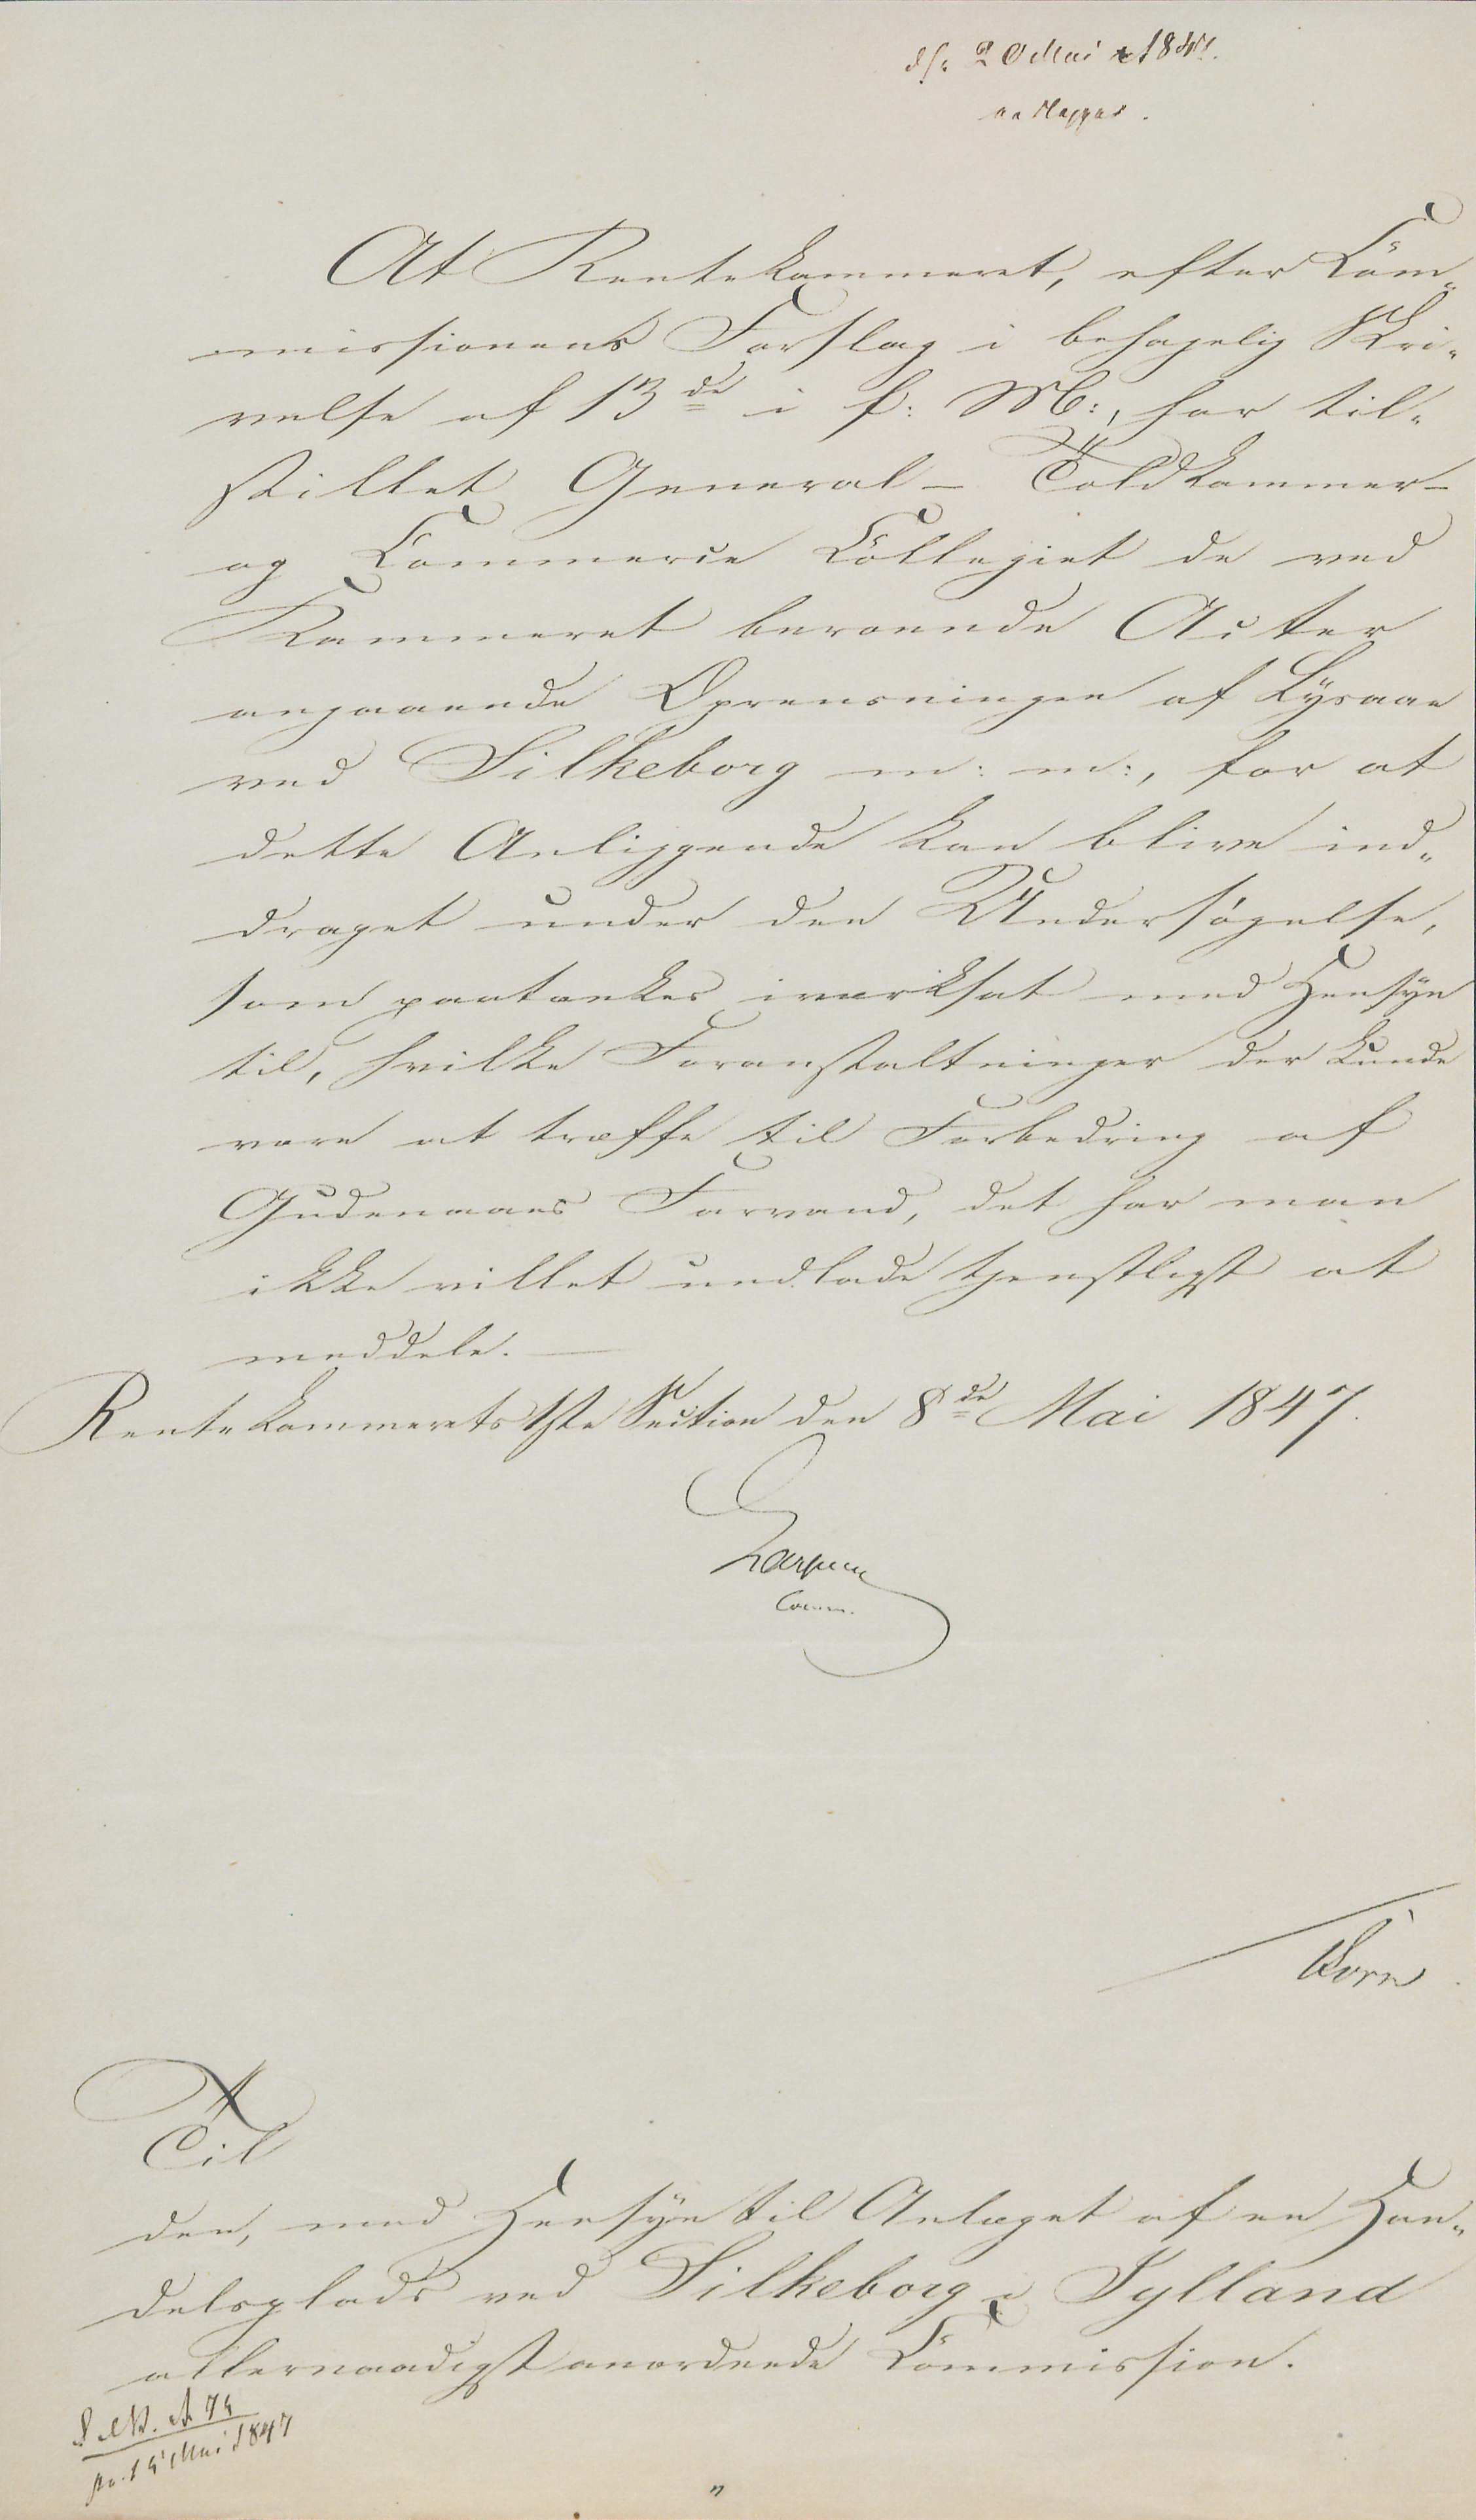 20 Mai 1847.
At Rentekammeret, efter Com-
missionens Forslag i behagelig Skri-
velse af 13de i f: M:, har til-
stillet General- Toldkammer-
og Commerce Collegiet de ved
Kammeret beroende Acter
angaaende Oprensningen af Lysaae
ved Silkeborg m: m:, for at
dette Anliggende kan blive ind-
draget under den Undersøgelse,
som paatænkes iværksat med Hensyn
til, hvilke Foranstaltninger der kunde
være at træffe til Forbedring af
Gudenaaes Farvand, det har man
ikke villet undlade tjenstligst at
meddele.
Rentekammerets 1ste Section den 8de Mai 1847.
Comm.
Til
den, med Hensyn til Anlæget af en Han-
delsplads ved Silkeborg i Jylland
allernaadigst anordnede Commission.
14 Mai 1847